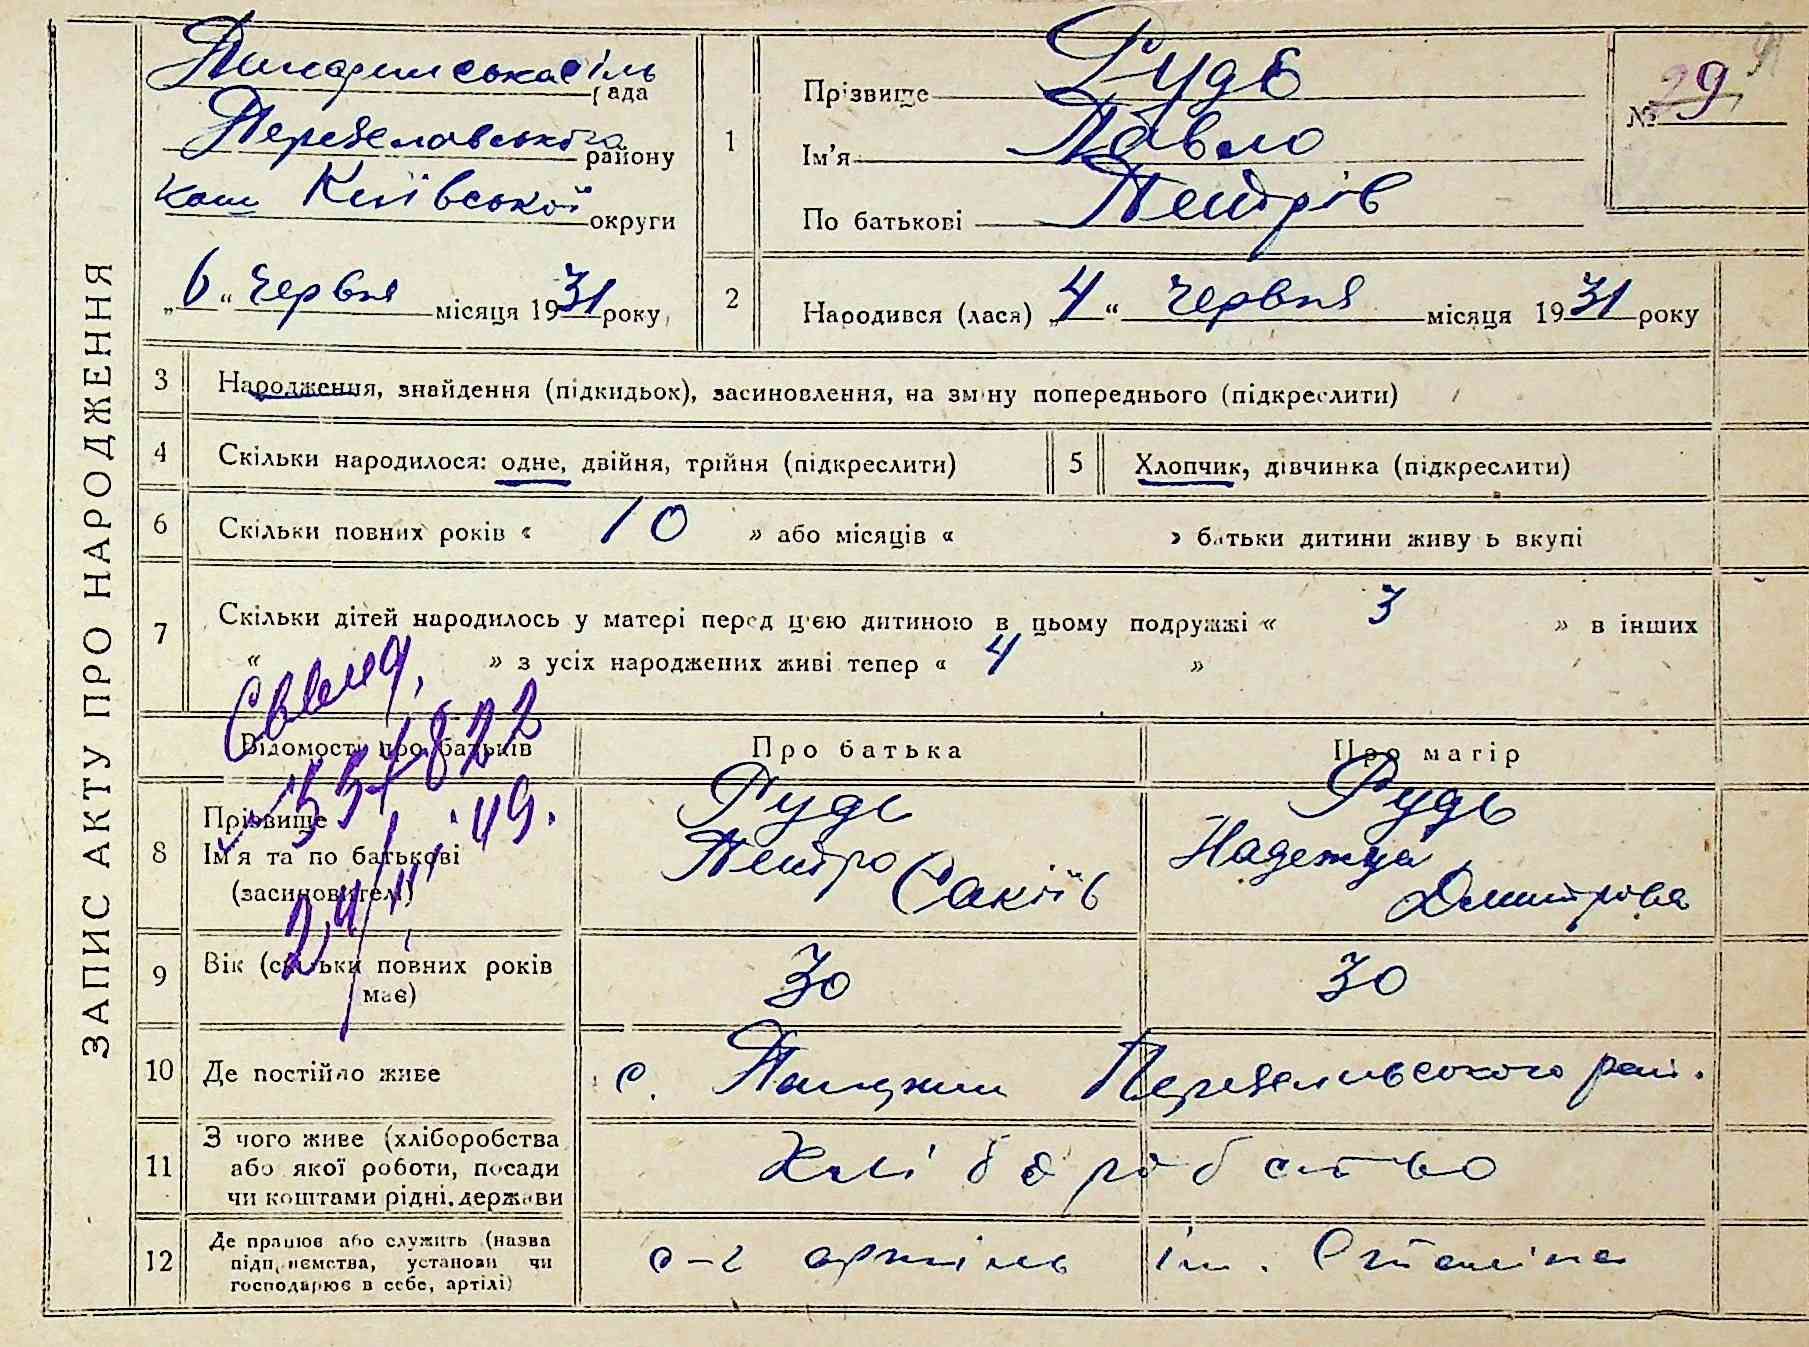 ЗАПИС АКТУ ПРО НАРОДЖЕННЯ
сіль
рада
Переяславського району
Київської округи
„6“ червня місяця 1931 року
1
Прізвище Рудь
Ім'я Павло
По батькові Петрів
№ 29
2
Народився (лася) „4“ червня місяця 1931 року
3
Народження, знайдення (підкидьох), засиновлення, на зміну попереднього (підкреслити)
4
Скільки народилося: одне, двійня, трійня (підкреслити)
5
Хлопчик, дівчинка (підкреслити)
6
Скільки повних років « 10 » або місяців « » батьки дитини живуть вкупі
7
Скільки дітей народилось у матері перед цією дитиною в цьому подружжі « 3 » в інших
« » з усіх народжених живі тепер « 4 »
Відомости про батьків
Про батька
Про матір
8
Прізвище
Ім'я та по батькові
(засиновителі)
Рудь
Петро Сакіїв
Рудь
Надежда
Дмитрова
9
Вік (скільки повних років
має)
30
30
10
Де постійно живе
с. Переяславського рай.
11
З чого живе (хліборобства
або якої роботи, посади
чи коштами рідні, держави
Хліборобство
12
Де працює або служить (назва
підприємства, установи чи
господарює в себе, артілі)
с-г артіль ім. Сталіна